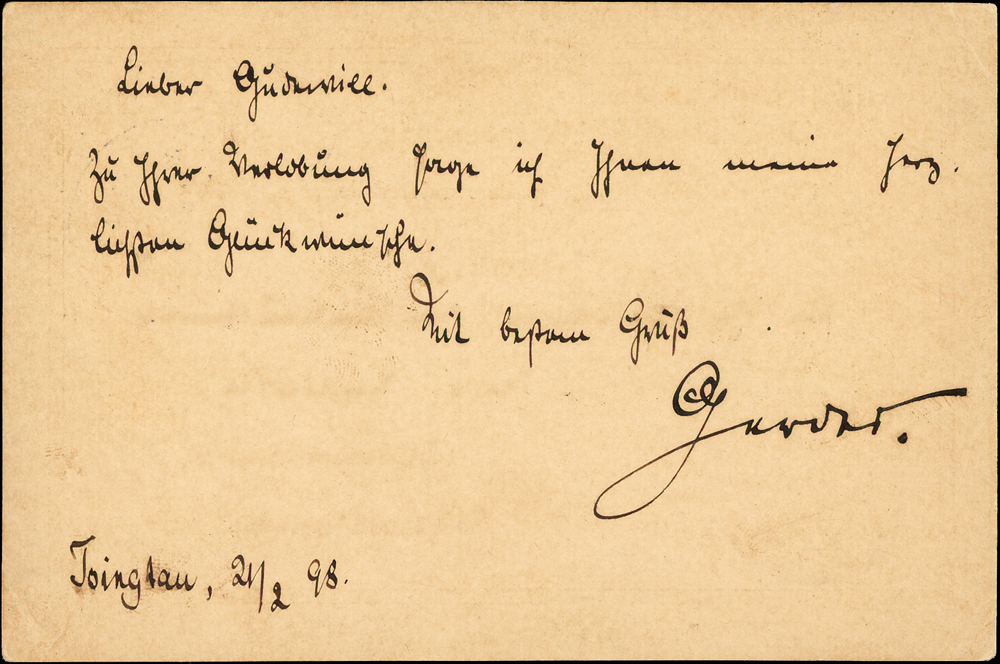 Lieber Gudewill.
Zu Ihrer Verlobung sage ich Ihnen meine herz.
lichsten Glückwünsche.
Mit bestem Gruß
Gerdes.
Tsingtau, 21/2 98.